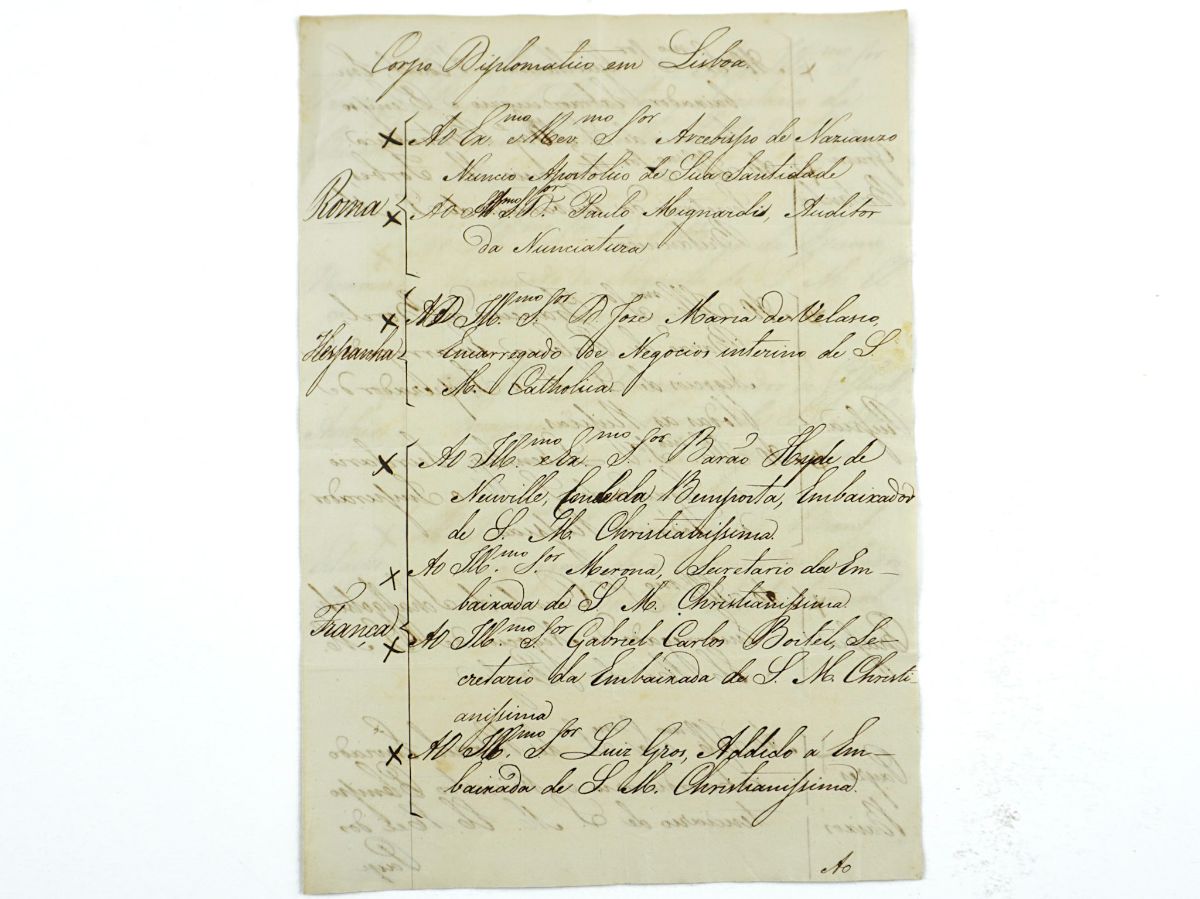 Corpo Diplomatico em Lisboa.
Ao Ex.mo e Rev.mo S.or Arcebispo de Nazianzo
Nuncio Apostolico de Sua Santidade
Roma
Ao Ill.mo S.or Paulo Mignardis, Auditor
da Nunciatura
Ao Ill.mo S.or D Joze Maria de Velasco,
Hespanha
Encarregado de Negocios interino de S.
M. Catholica.
Ao Ill.mo e Ex.mo S.or Barão Hyde de
Neuville, Conde da Bemposta, Embaixador
de S. M. Christianissima.
Ao Ill.mo S.or Merona, Secretario da Em-
baixada de S. M. Christianissima.
França
Ao Ill.mo S.or Gabriel Carlos Boitel, Se-
cretario da Embaixada de S. M. Christi-
anissima
Ao Ill.mo S.or Luiz Gros, Addido á Em-
baixada de S. M. Christianissima.
Ao